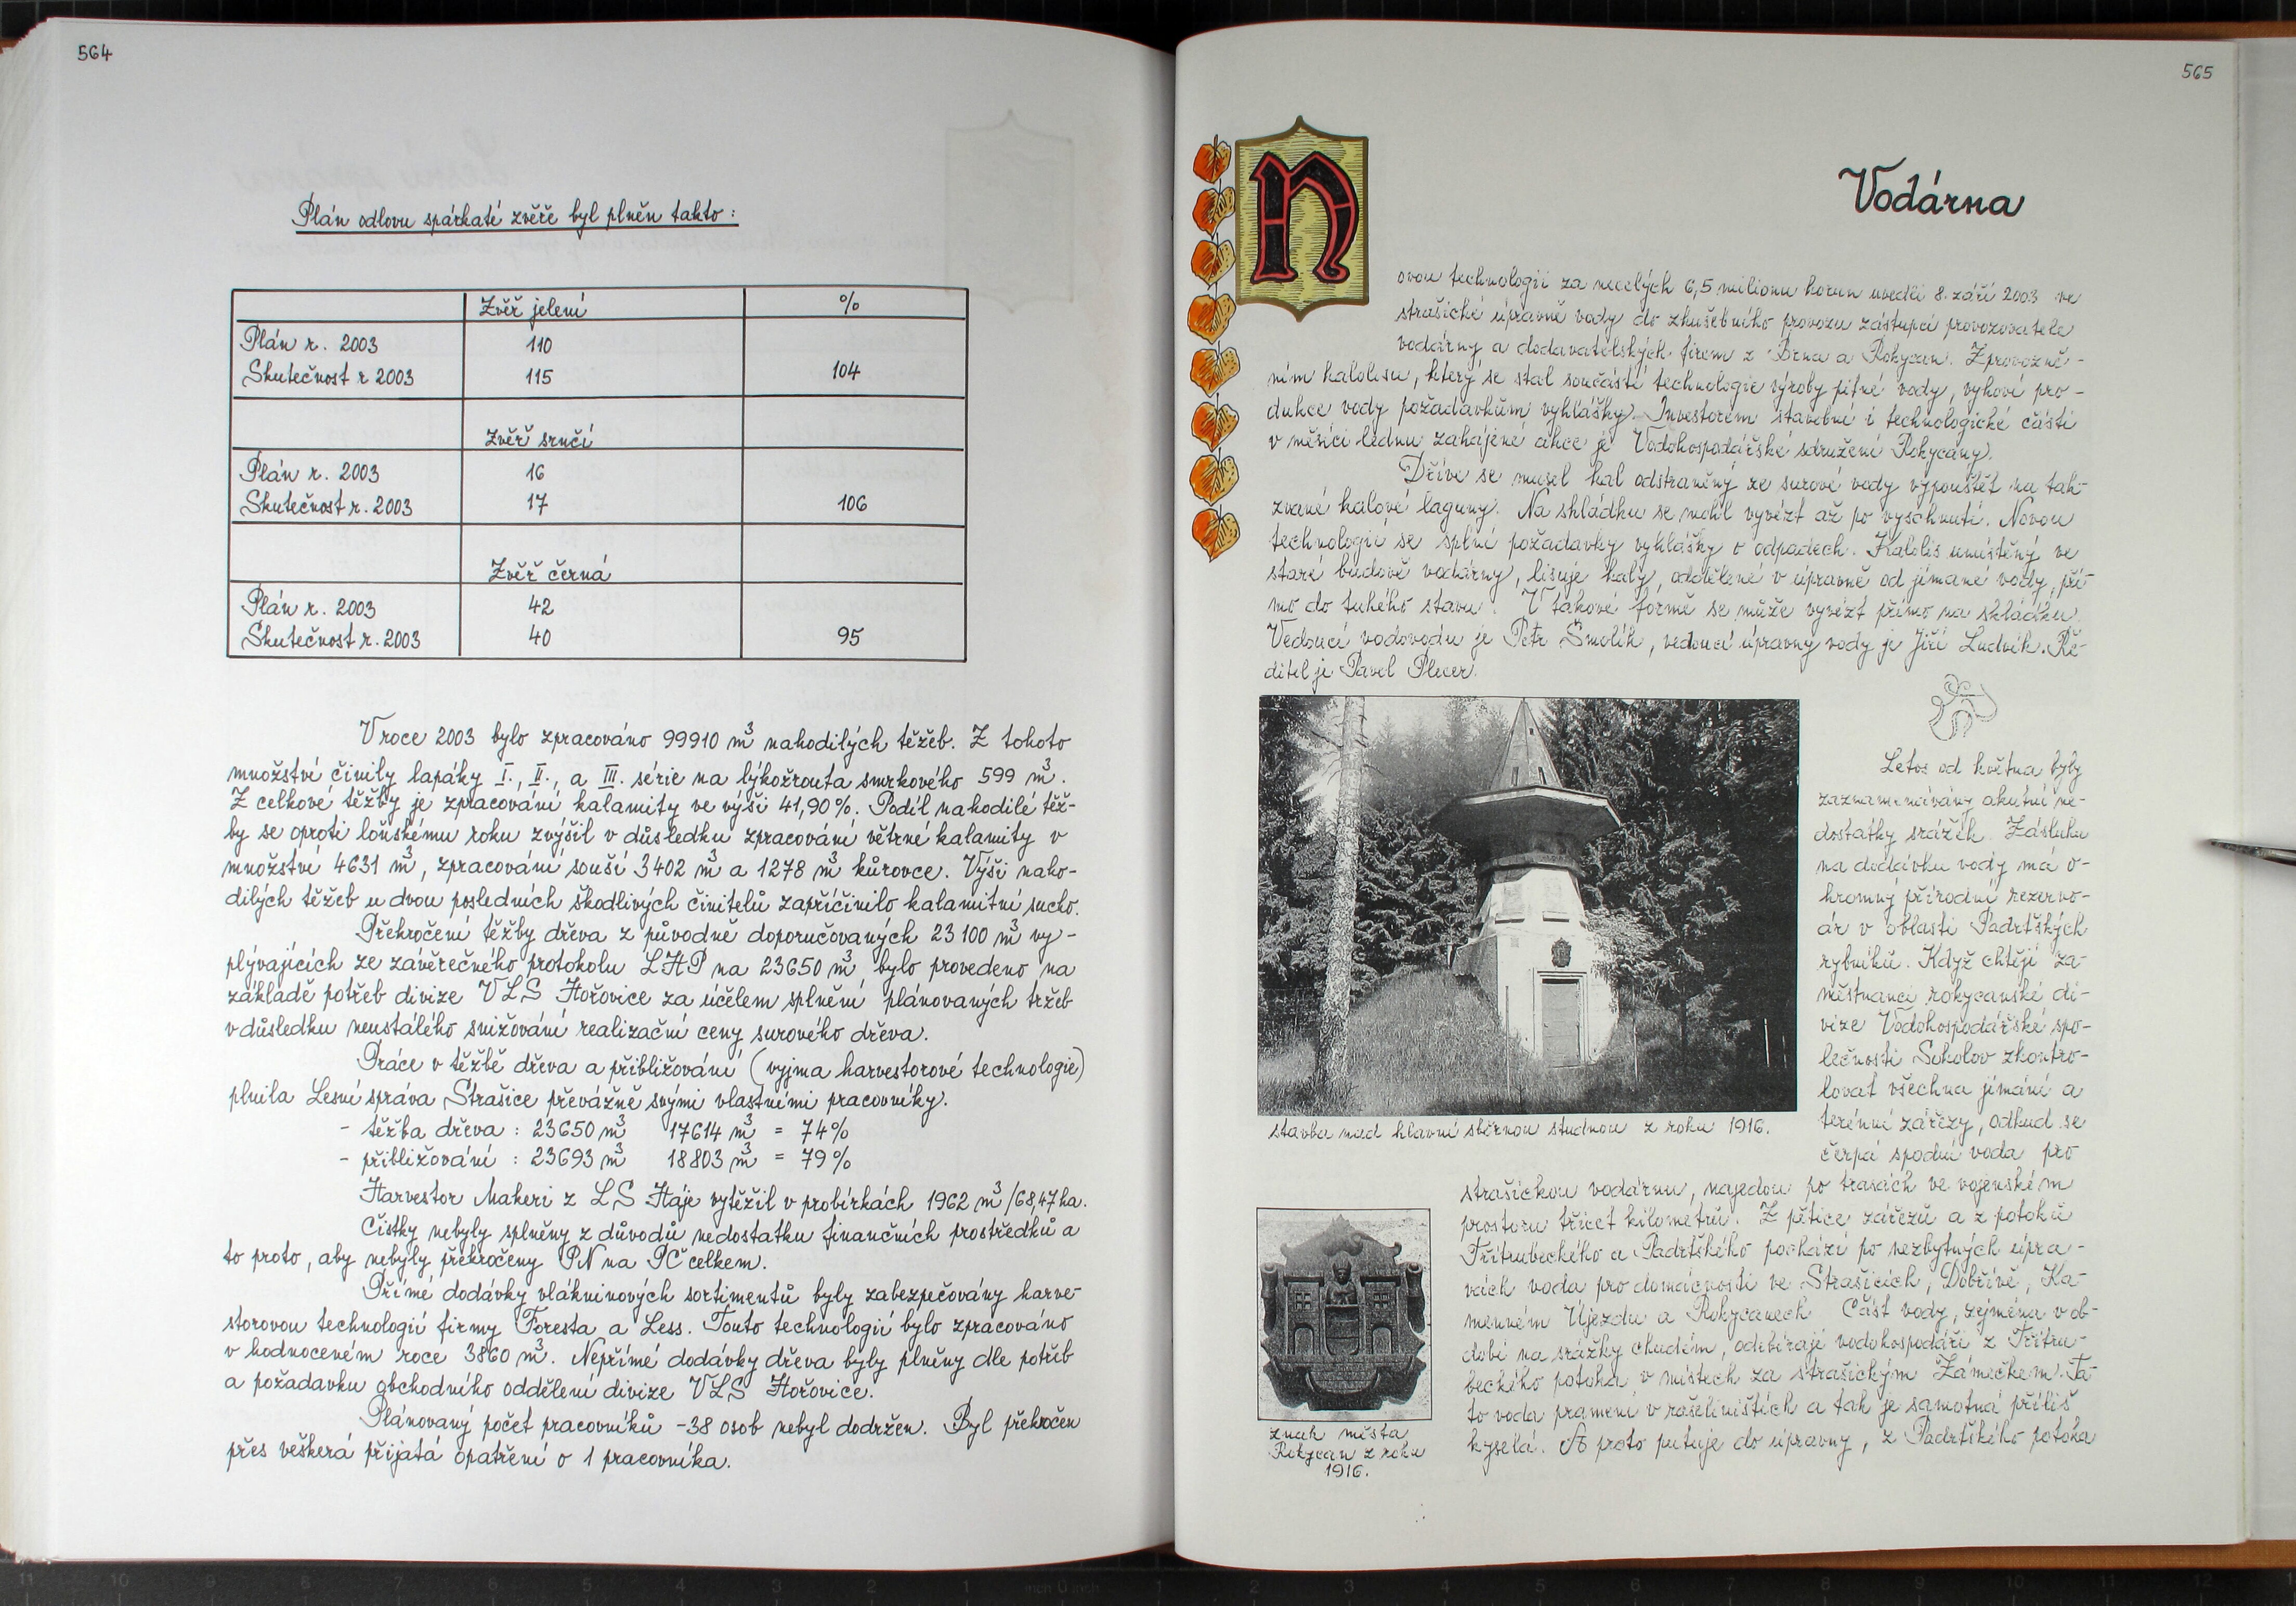 564
Plán odlovu spárkaté zvěře byl plněn takto :
Zvěř jelení %
Plán r. 2003 110
Skutečnost r 2003 115 104
Zvěř srnčí
Plán r. 2003 16
Skutečnost r. 2003 17 106
Zvěř černá
Plán r. 2003 42
Skutečnost r. 2003 40 95
V roce 2003 bylo zpracováno 99910 m³ nahodilých těžeb. Z tohoto
množství činily lapáky I., II., a III. série na lýkožrouta smrkového 599 m³.
Z celkové těžby je zpracování kalamity ve výši 41,90%. Podíl nahodilé těž-
by se oproti loňskému roku zvýšil v důsledku zpracování větrné kalamity v
množství 4631 m³, zpracování souší 3402 m³ a 1278 m³ kůrovce. Výši naho-
dilých těžeb u dvou posledních škodlivých činitelů zapříčinilo kalamitní sucho.
Překročení těžby dřeva z původně doporučovaných 23100 m³ vy-
plývajících ze závěrečného protokolu LHP na 23650 m³ bylo provedeno na
základě potřeb divize VLS Hořovice za účelem splnění plánovaných tržeb
v důsledku neustálého snižování realizační ceny surového dřeva.
Práce v těžbě dřeva a přibližování (vyjma harvestorové technologie)
plnila Lesní správa Strašice převážně svými vlastními pracovníky.
- těžba dřeva : 23650 m³ 17614 m³ = 74%
- přibližování : 23693 m³ 18803 m³ = 79%
Harvestor Makeri z LS Háje vytěžil v probírkách 1962 m³/68,47ha.
Čistky nebyly splněny z důvodů nedostatku finančních prostředků a
to proto, aby nebyly překročeny PN na PČ celkem.
Přímé dodávky vlákninových sortimentů byly zabezpečovány harve-
storovou technologií firmy Foresta a Less. Touto technologií bylo zpracováno
v hodnoceném roce 3860 m³. Nepřímé dodávky dřeva byly plněny dle potřeb
a požadavku obchodního oddělení divize VLS Hořovice.
Plánovaný počet pracovníků -38 osob nebyl dodržen. Byl překročen
přes veškerá přijatá opatření o 1 pracovníka.
565
Vodárna
N
ovou technologii za necelých 6,5 milionu korun uvedli 8. září 2003 ve
strašické úpravně vody do zkušebního provozu zástupci provozovatele
vodárny a dodavatelských firem z Brna a Rokycan. Zprovozně-
ním kalolisu, který se stal součástí technologie výroby pitné vody, vyhoví pro-
dukce vody požadavkům vyhlášky. Investorem stavební i technologické části
v měsíci lednu zahájené akce je Vodohospodářské sdružení Rokycany.
Dříve se musel kal odstraněný ze surové vody vypouštět na tak
zvané kalové laguny. Na skládku se mohl vyvézt až po vyschnutí. Novou
technologií se splní požadavky vyhlášky o odpadech. Kalolis umístěný ve
staré budově vodárny, lisuje kaly, oddělené v úpravně od jímané vody, pří-
mo do tuhého stavu. V takové formě se může vyvézt přímo na skládku.
Vedoucí vodovodu je Petr Smolík, vedoucí úpravny vody je Jiří Ludvík. Ře-
ditel je Pavel Plecer.
Letos od května byly
zaznamenávány akutní ne-
dostatky srážek. Zásluhu
na dodávku vody má o-
hromný přírodní rezervo-
ár v oblasti Padrťských
rybníků. Když chtějí za-
městnanci rokycanské di-
vize Vodohospodářské spo-
lečnosti Sokolov zkontro-
lovat všechna jímání a
terénní zářezy, odkud se
čerpá spodní voda pro
stavba nad hlavní sběrnou studnou z roku 1916.
strašickou vodárnu, najedou po trasách ve vojenském
prostoru třicet kilometrů. Z pětice zářezů a z potoků
Třítrubeckého a Padrťského pochází po nezbytných úpra-
vách voda pro domácnosti ve Strašicích, Dobřívě, Ka-
menném Újezdu a Rokycanech. Část vody, zejména v ob-
dobí na srážky chudém, odebírají vodohospodáři z Třítru-
beckého potoka, v místech za strašickým Zámečkem. Ta-
to voda pramení v rašeliništích a tak je samotná příliš
kyselá. A proto putuje do úpravny, z Padrťského potoka
znak města
Rokycan z roku
1916.